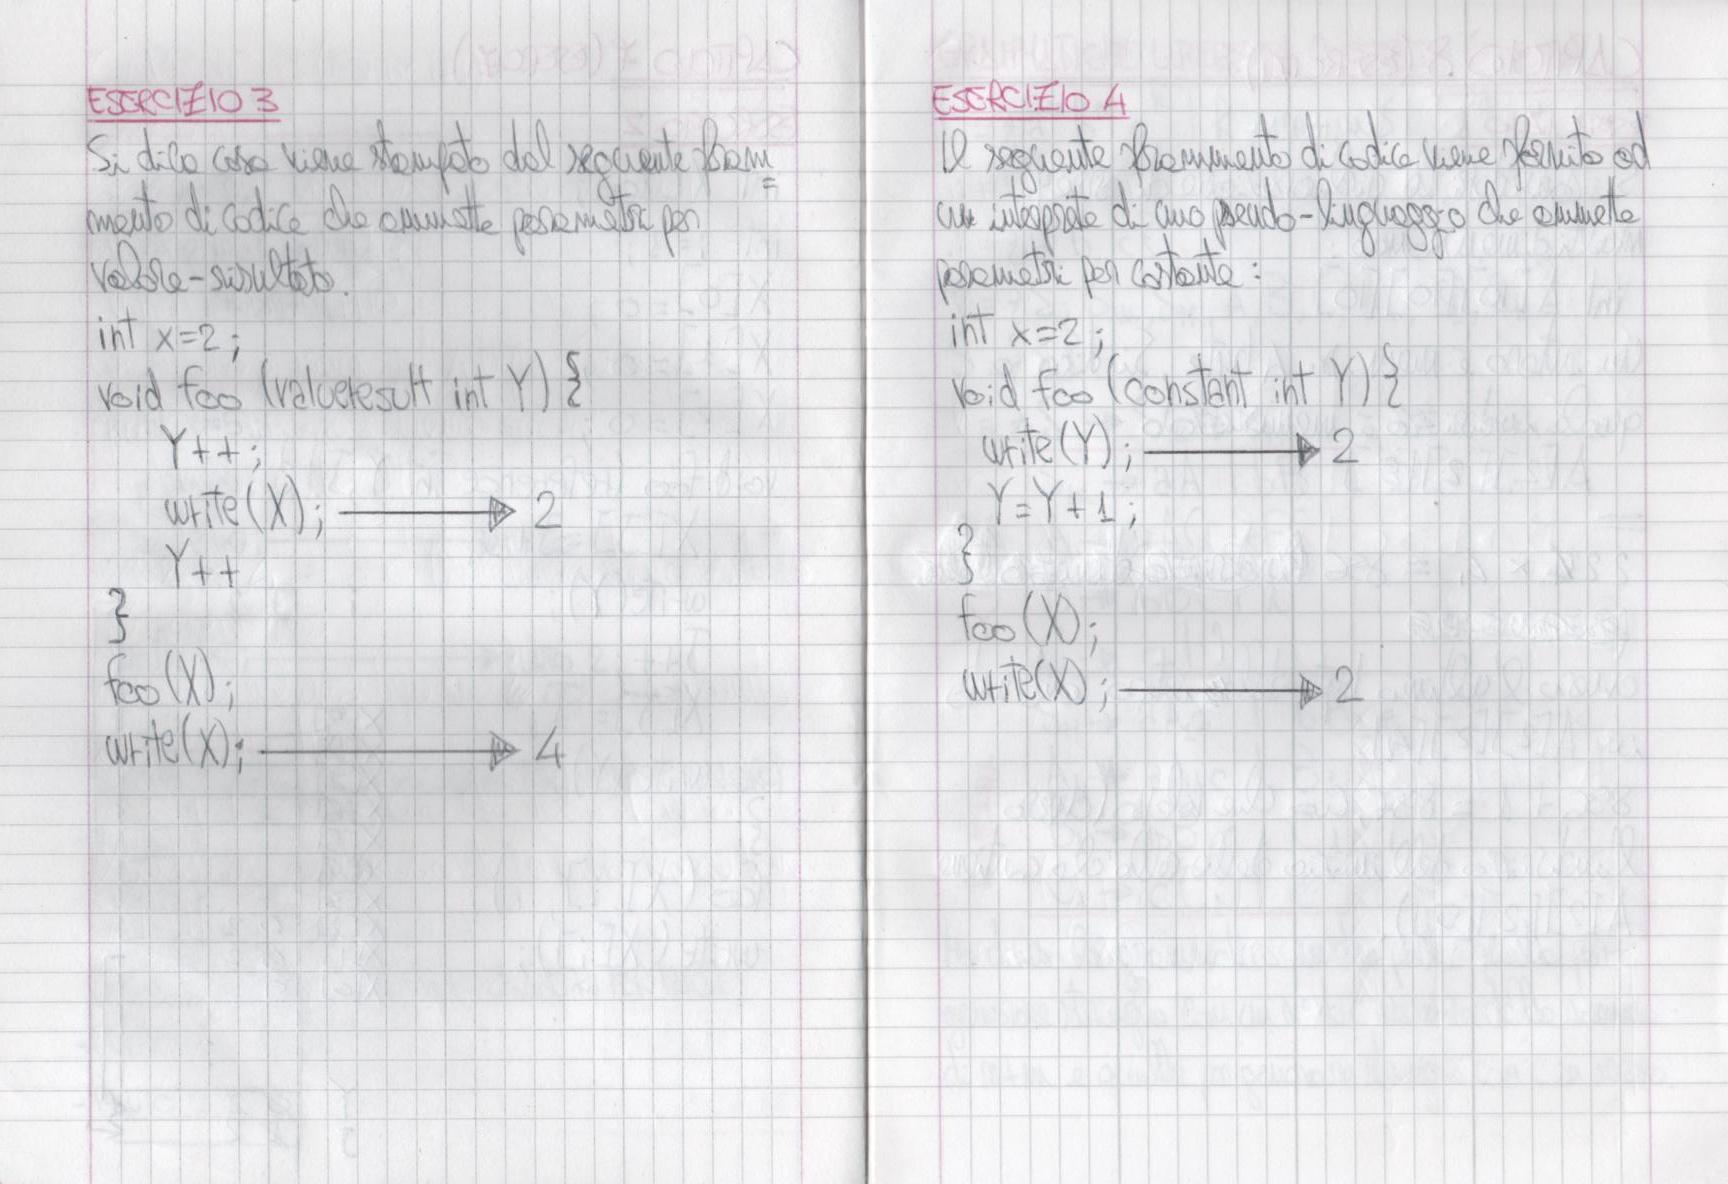 ESERCIZIO 3
Si dica cosa viene stampato dal seguente fram=
mento di codice che ammette parametri per
valore-risultato.
int x=2;
void foo (valueresult int Y) {
Y++;
write(X); 2
Y++
}
foo(X);
write(X); 4
ESERCIZIO 4
Il seguente frammento di codice viene fornito ad
un interprete di uno pseudo-linguaggio che ammette
parametri per costante:
int x=2;
void foo (constant int Y) {
write(Y); 2
Y=Y+1;
}
foo(X);
write(X); 2